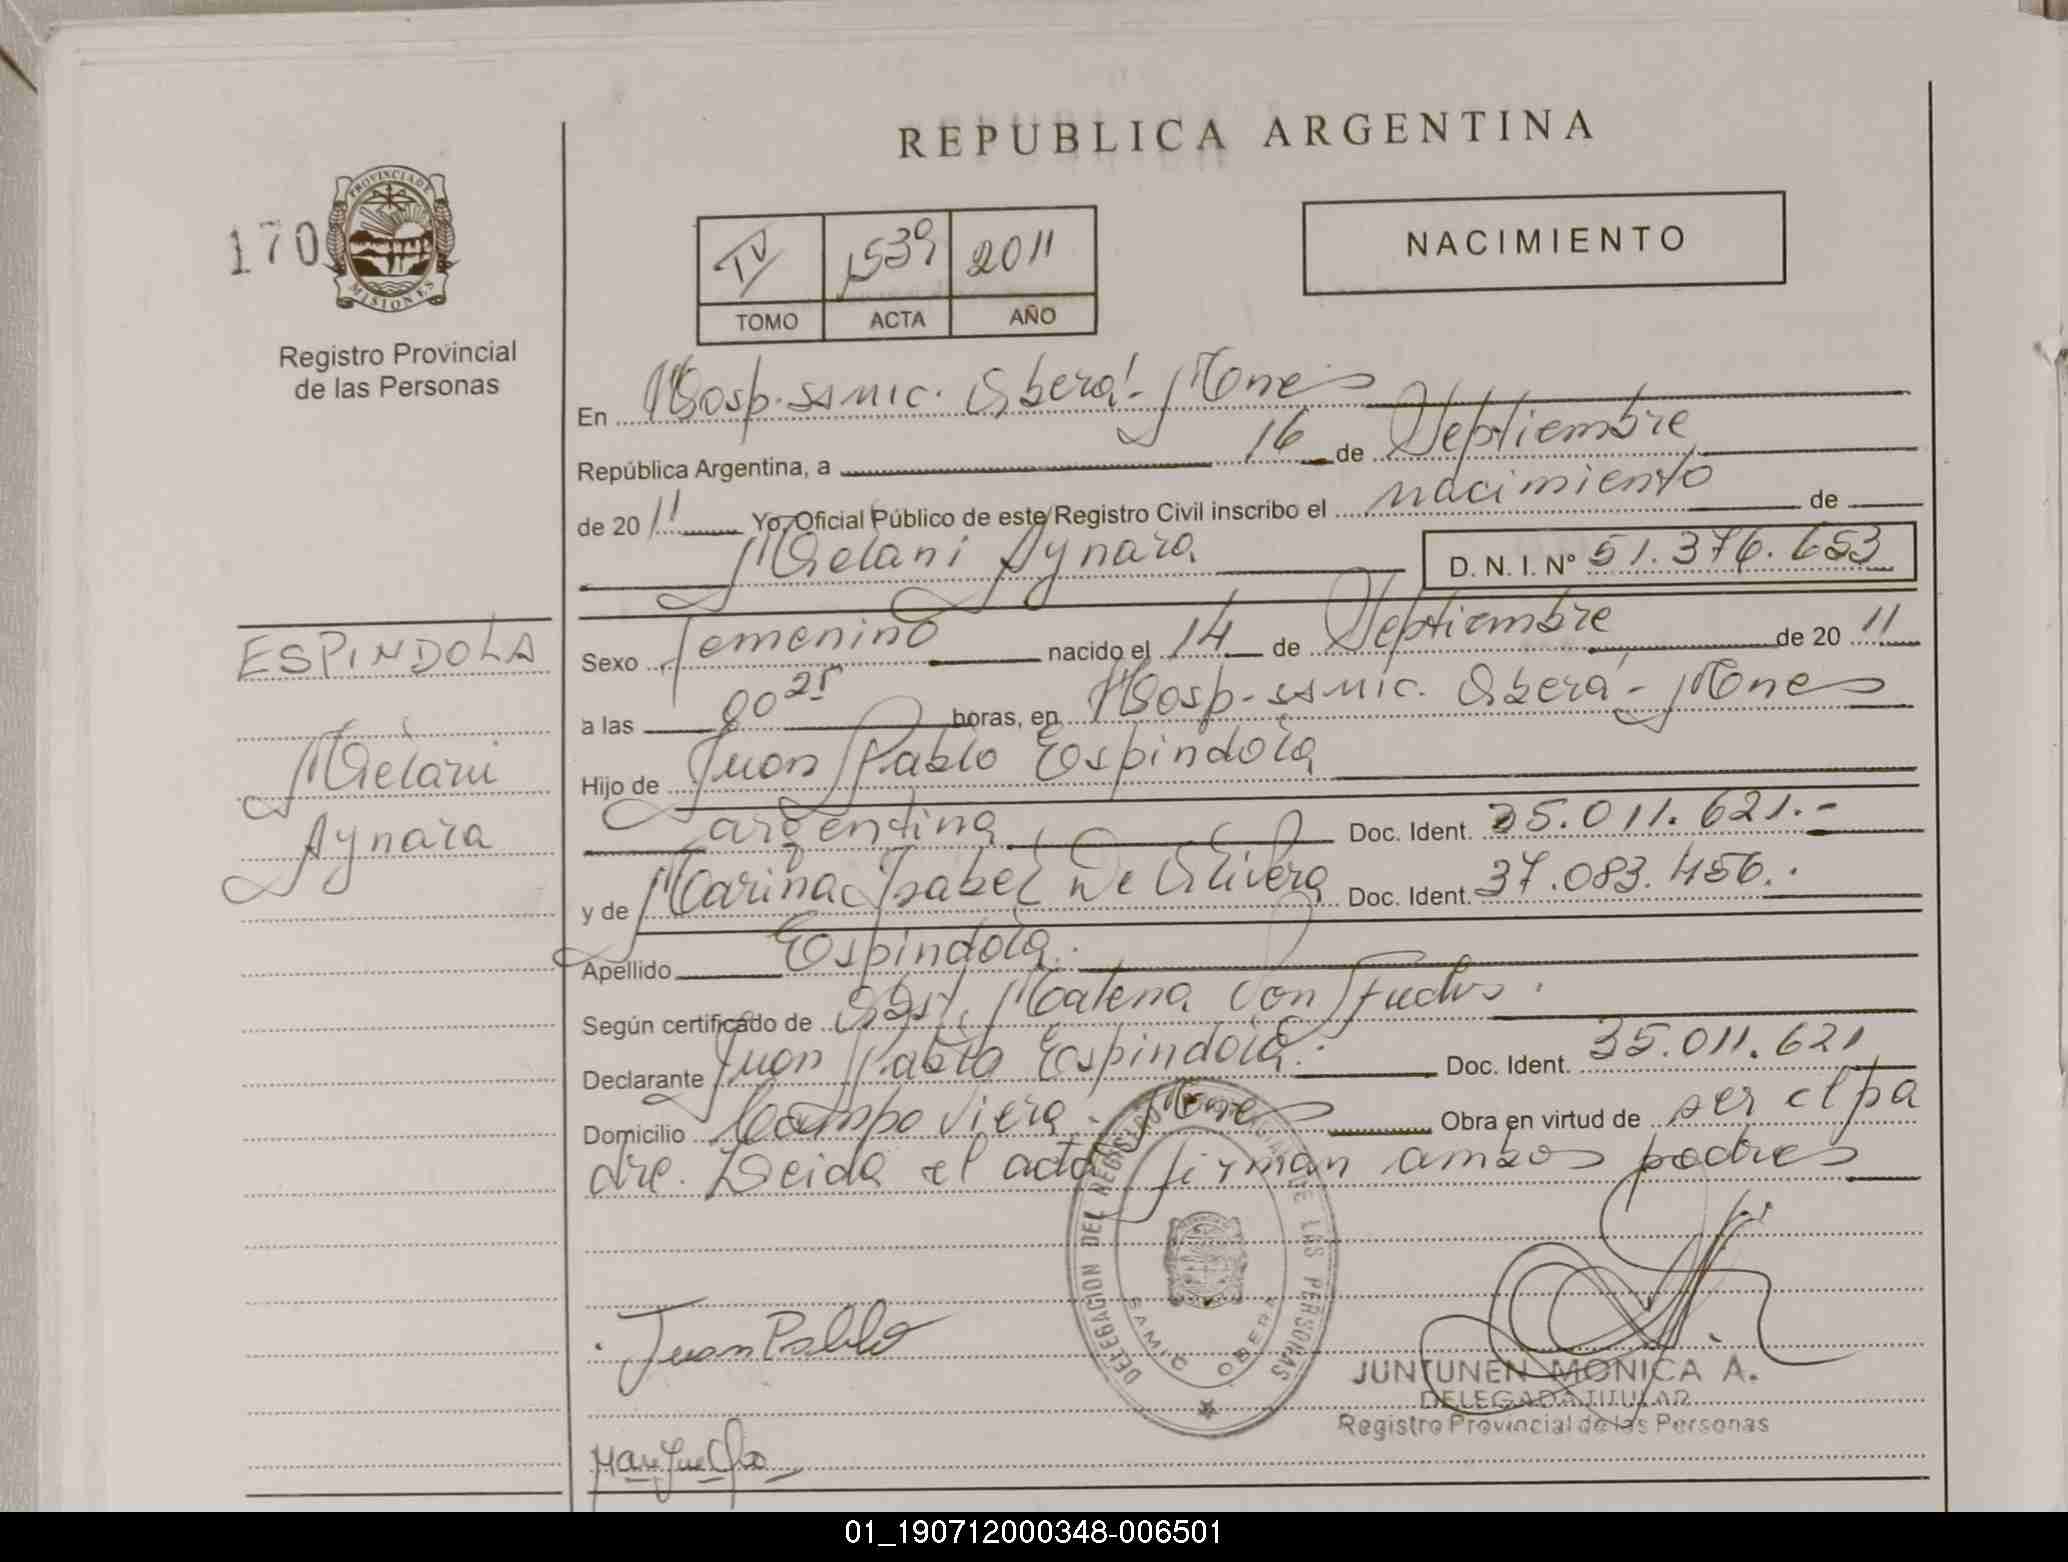 REPUBLICA ARGENTINA
170
PROVINCIA DE MISIONES
Registro Provincial
de las Personas
IV 1539 2011
TOMO ACTA AÑO
NACIMIENTO
En Hosp. SAMIC. Oberá - Mones
República Argentina, a 16 de Septiembre
de 2011 Yo, Oficial Público de este Registro Civil inscribo el nacimiento de
Melani Aynara D. N. I. Nº 51.376.653
ESPINDOLA
Melani
Aynara
Sexo femenino nacido el 14 de Septiembre de 2011
a las 00 25 horas, en Hosp. SAMIC. Oberá - Mones
Hijo de Juan Pablo Espindola
argentina Doc. Ident. 35.011.621.-
y de Marina Isabel De Olivera Doc. Ident. 37.083.456.
Apellido Espindola.
Según certificado de Obst. Malena Von
Declarante Juan Pablo Espindola. Doc. Ident. 35.011.621
Domicilio Campo Viera. Mones Obra en virtud de ser el pa
dre. Leida el acta firman ambos padres
DELEGACION DEL REGISTRO PROVINCIAL DE LAS PERSONAS
SAMIC OBERA
Juan Pablo
JUNTUNEN MONICA A.
DELEGADA TITULAR
Registro Provincial de las Personas
01_190712000348-006501